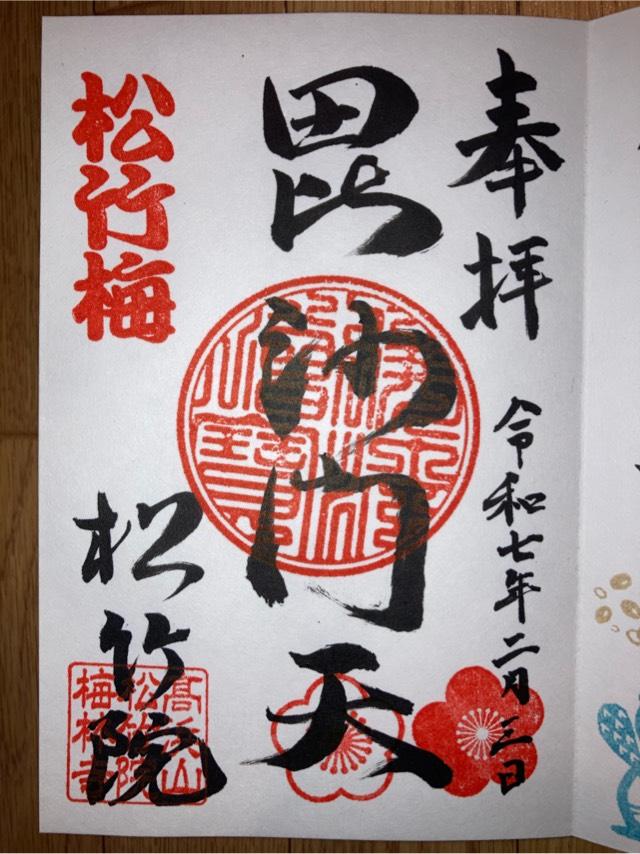 奉拝
令和七年二月三日
毘沙門天
松竹梅
松竹院
高野山
松竹院
梅林寺